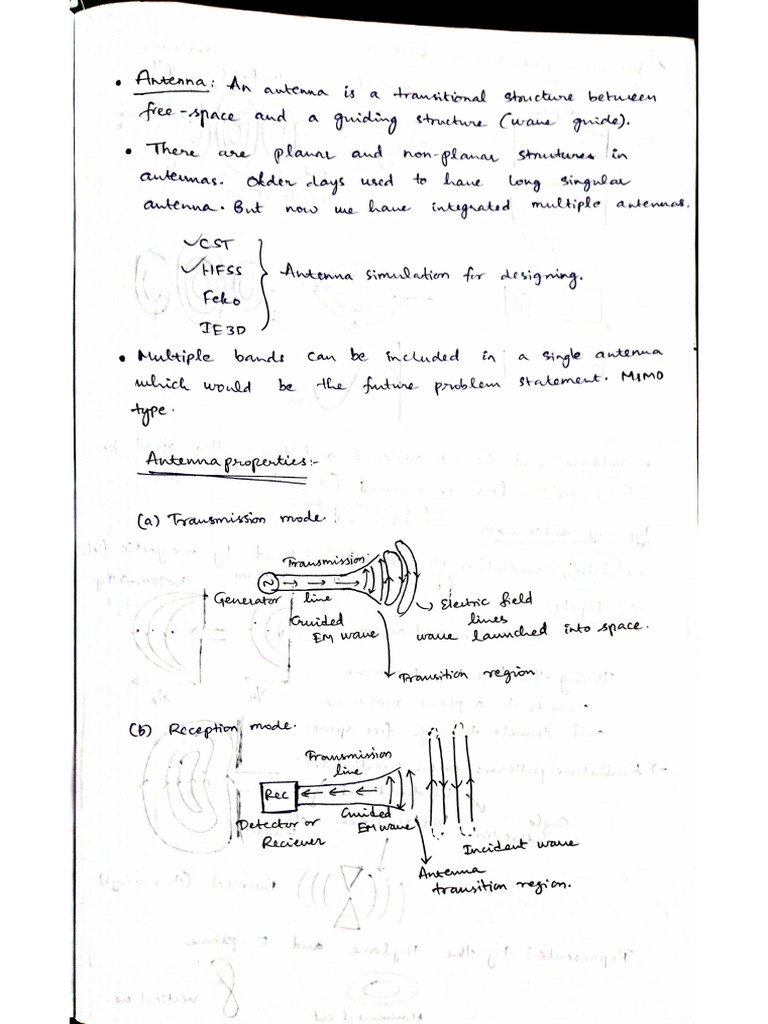 • Antenna: An antenna is a transitional structure between
free-space and a guiding structure (wave guide).
• There are planar and non-planar strutures in
antennas. Older days used to have long singular
antenna. But now we have integrated multiple antennas.
✓CST
✓HFSS
Feko
IE3D
Antenna simulation for designing.
• Multiple bands can be included in a single antenna
which would be the future problem statement. MIMO
type.
Antenna properties:-
(a) Transmission mode:
Transmission
line
~
Generator
Guided
EM wave
Electric field
lines
wave launched into space.
Transition region
(b) Reception mode.
Transmission
line
Rec
Detector or
Reciever
Guided
EM wave
Incident wave
Antenna
transition region.